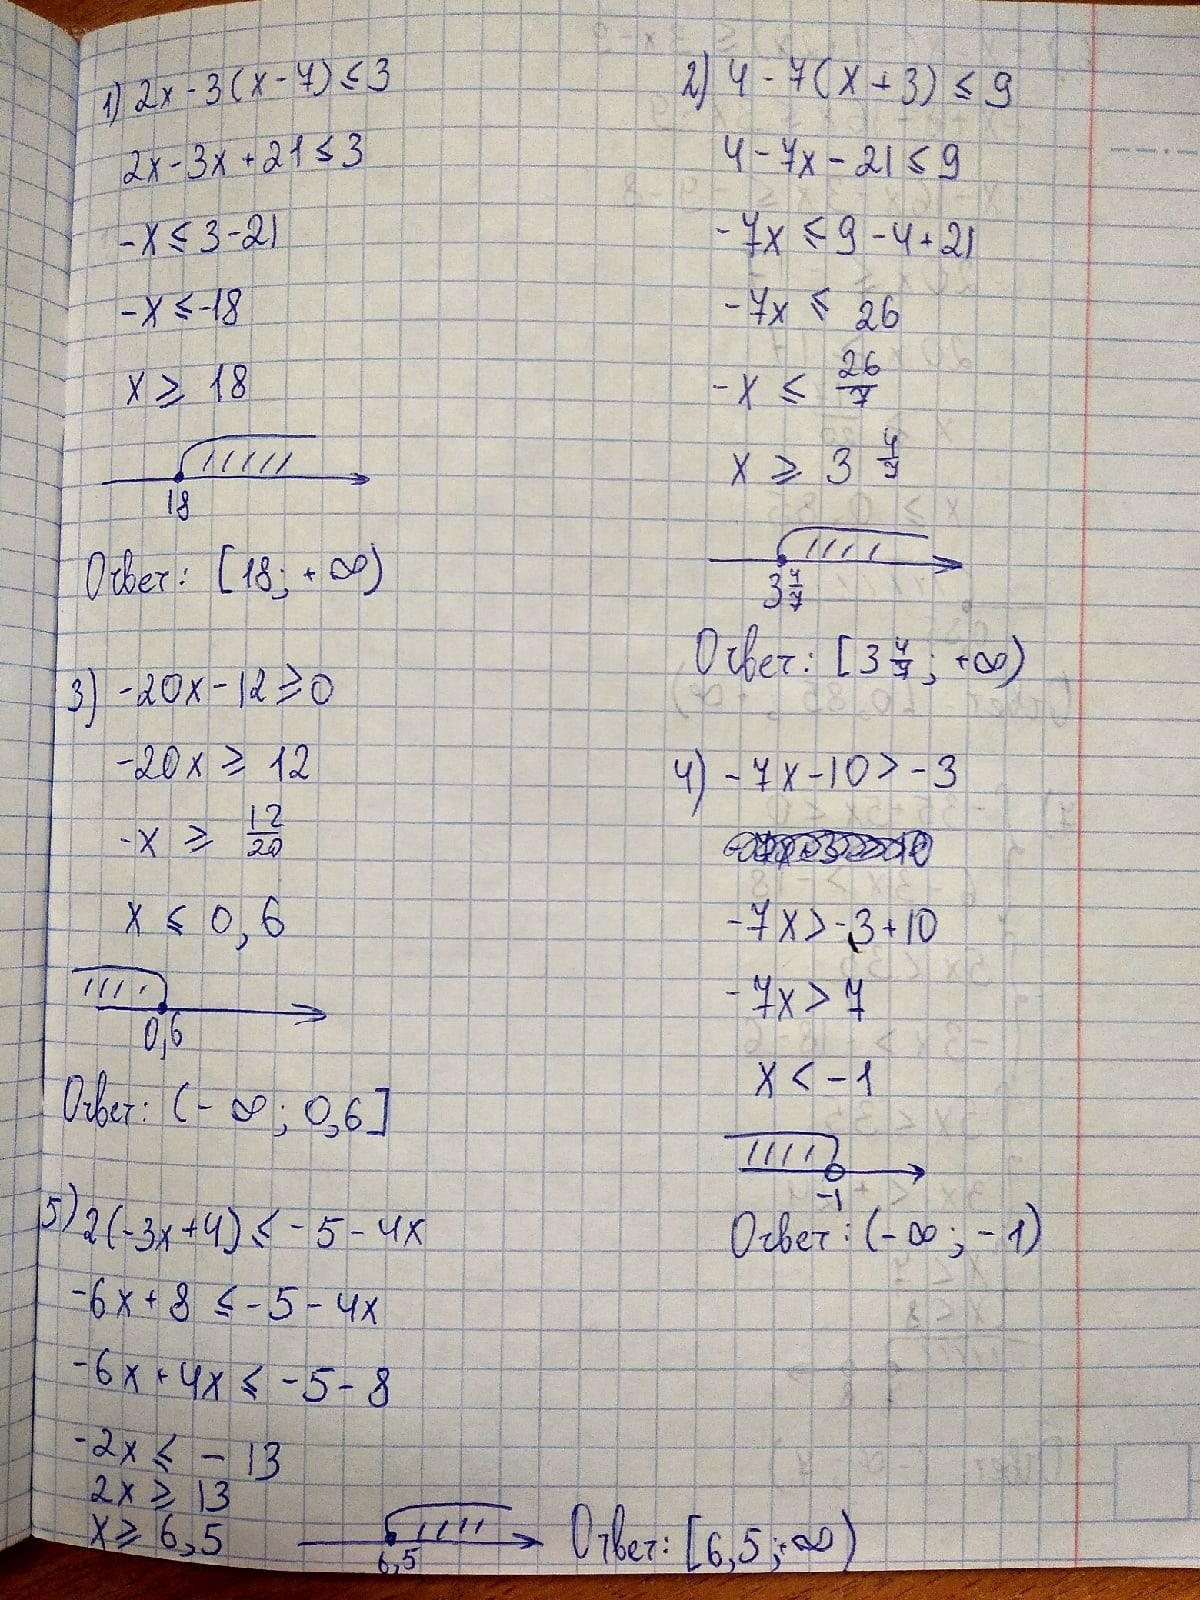 1) 2x - 3(x - 7) ≤ 3
2x - 3x + 21 ≤ 3
-x ≤ 3 - 21
-x ≤ -18
x ≥ 18
18
Ответ: [18; +∞)
2) 4 - 7(x + 3) ≤ 9
4 - 7x - 21 ≤ 9
-7x ≤ 9 - 4 + 21
-7x ≤ 26
-x ≤ 26/7
x ≥ 3 4/7
3 4/7
Ответ: [3 4/7; +∞)
3) -20x - 12 ≥ 0
-20x ≥ 12
-x ≥ 12/20
x ≤ 0,6
0,6
Ответ: (-∞; 0,6]
4) -7x - 10 > -3
-7x > -3 + 10
-7x > 7
x < -1
-1
Ответ: (-∞; -1)
5) 2(-3x + 4) ≤ -5 - 4x
-6x + 8 ≤ -5 - 4x
-6x + 4x ≤ -5 - 8
-2x ≤ -13
2x ≥ 13
x ≥ 6,5
6,5
Ответ: [6,5; +∞)